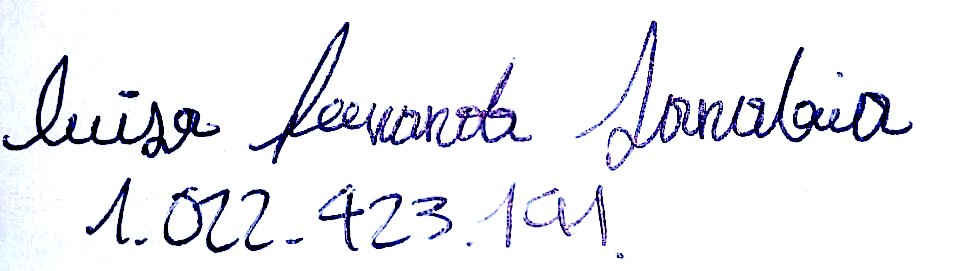 luisa fernanda Sanabria
1.022.423.191.